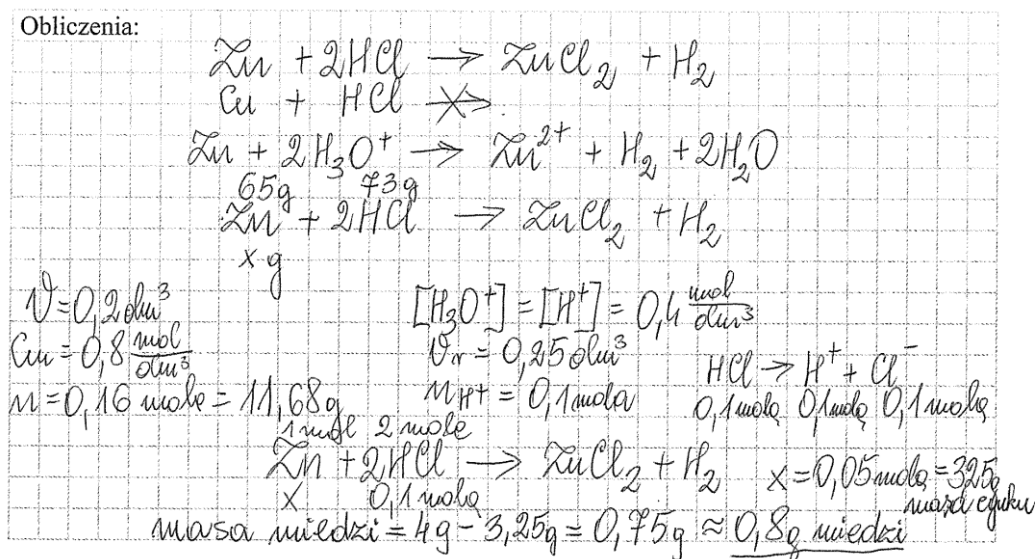 Obliczenia:
Zn + 2HCl → ZnCl₂ + H₂
Cu + HCl ↛
Zn + 2H₃O⁺ → Zn²⁺ + H₂ + 2H₂O
65g 73g
Zn + 2HCl → ZnCl₂ + H₂
x g
V = 0,2 dm³
Cm = 0,8 mol/dm³
n = 0,16 mola = 11,68g
[H₃O⁺] = [H⁺] = 0,4 mol/dm³
Vr = 0,25 dm³
nH⁺ = 0,1 mola
HCl → H⁺ + Cl⁻
0,1 mola 0,1 mola 0,1 mola
1 mol 2 mole
Zn + 2HCl → ZnCl₂ + H₂
x 0,1 mola
x = 0,05 mola = 325g
masa cynku
masa miedzi = 4g - 3,25g = 0,75g ≈ 0,8g miedzi